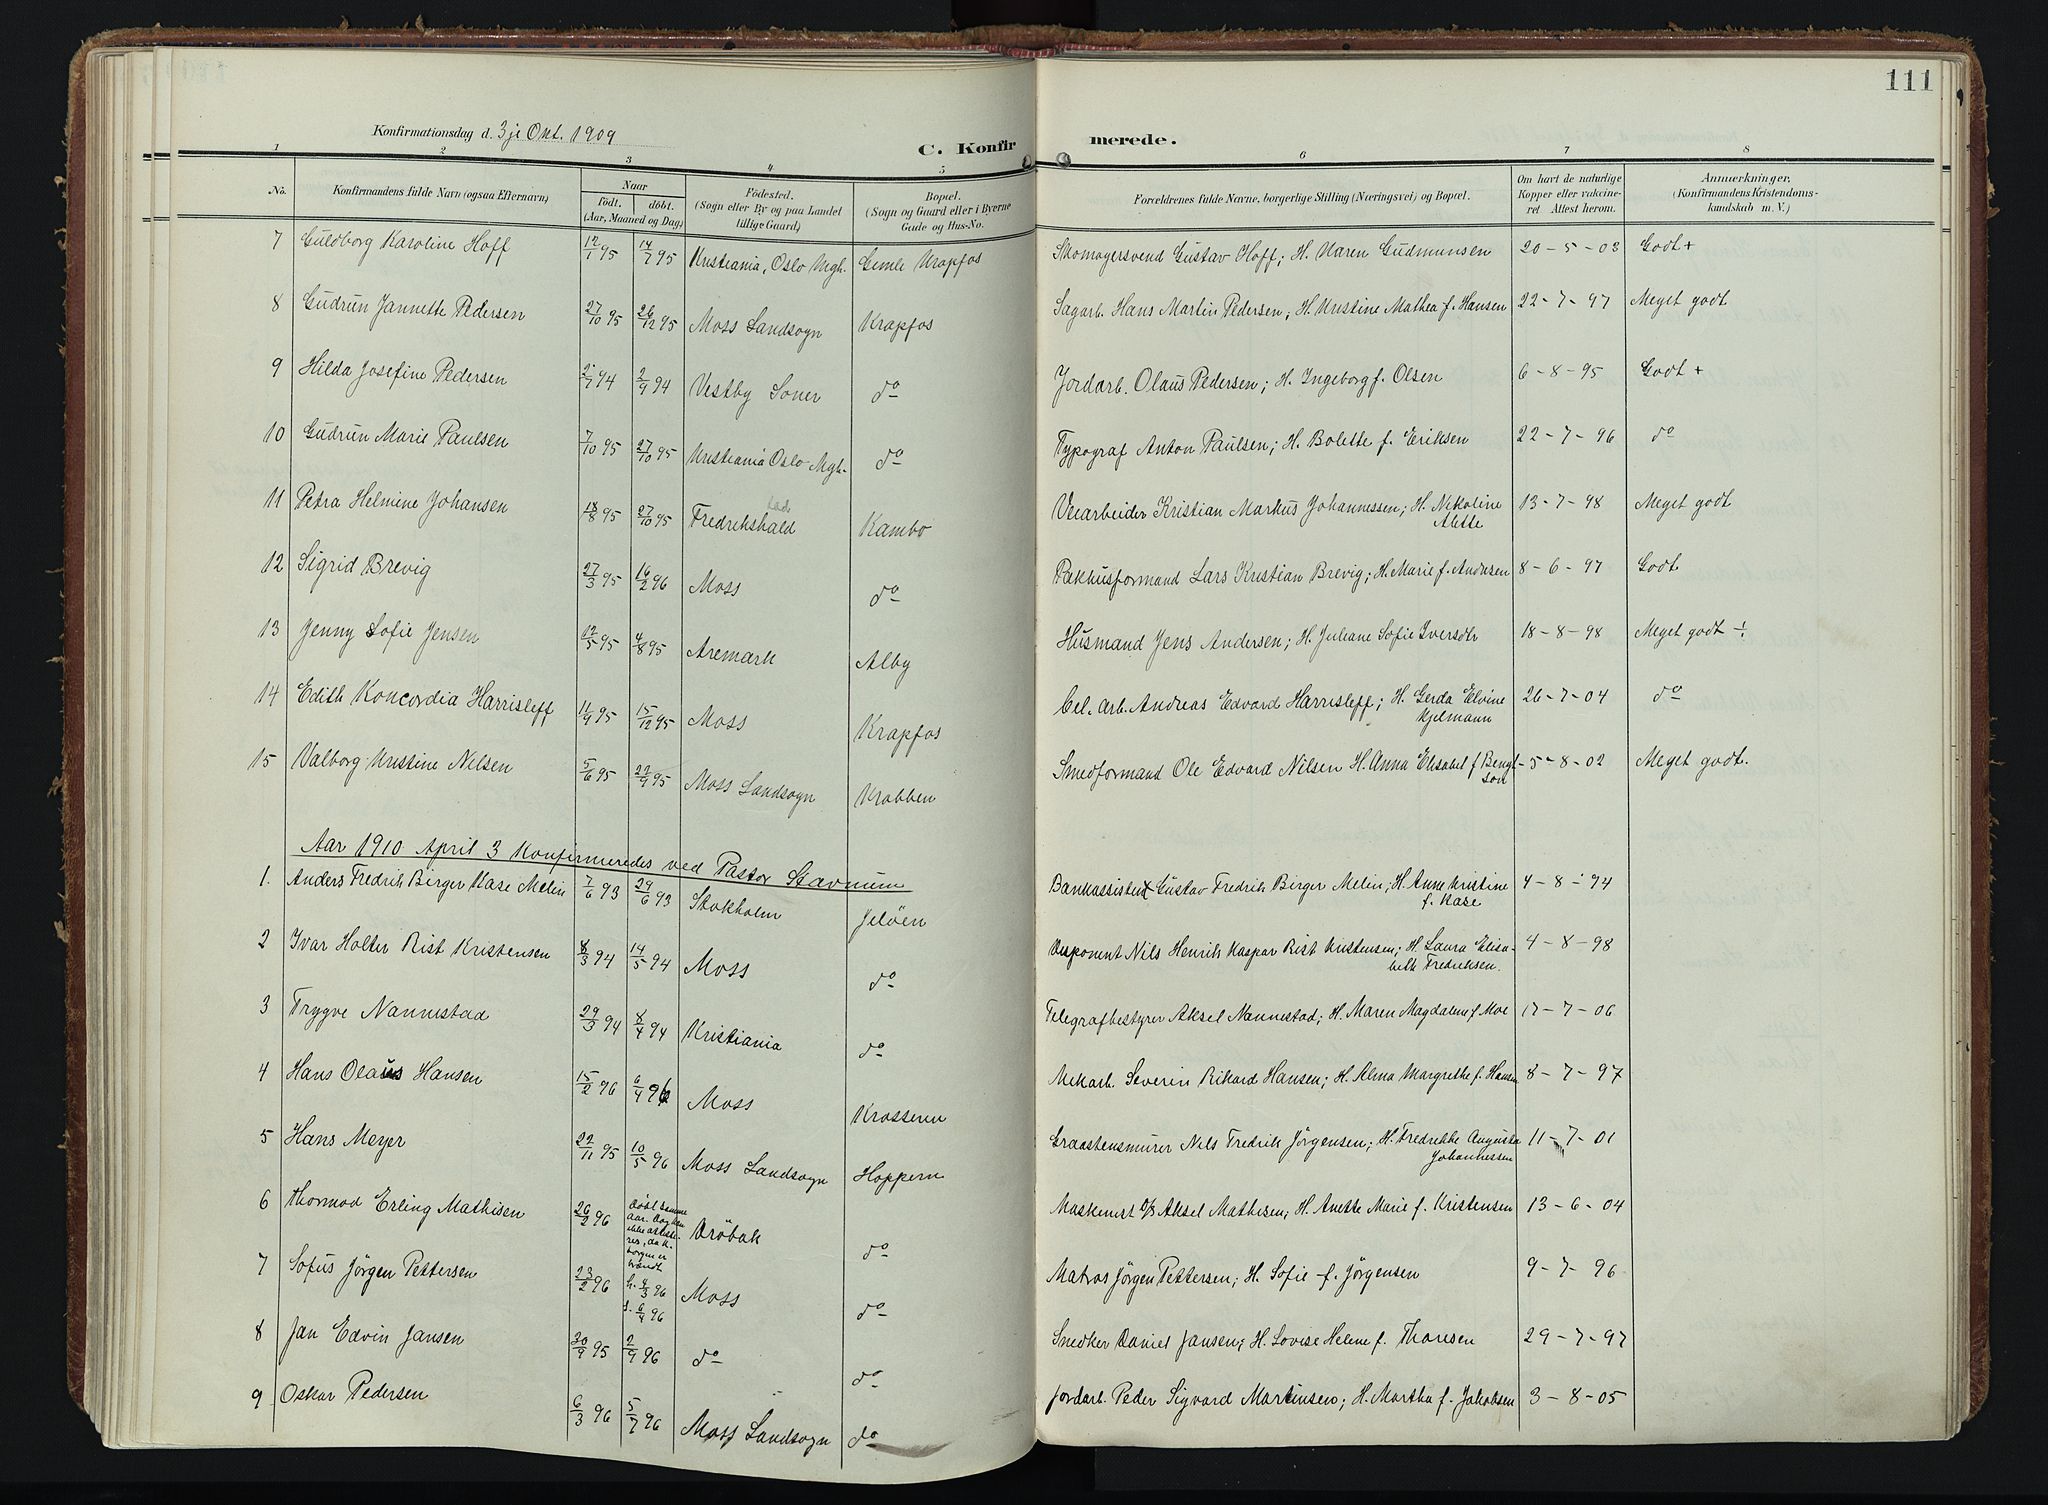 111
Konfirmationsdag d. 3je Okt. 1909
C. Konfirmerede.
1 2 3 4 5 6 7 8
No. Konfirmandens fulde Navn (ogsaa Efternavn) Naar født. døbt. (Aar, Maaned og Dag) Fødested. (Sogn eller By og paa Landet tillige Gaard) Bopæl. (Sogn og Gaard eller i Byerne Gade og Hus-No. Forældrenes fulde Navne, borgerlige Stilling (Næringsvei) og Bopæl. Om havt de naturlige Kopper eller vaccineret Attest herom. Anmerkninger. (Konfirmandens Kristendomskundskab m. V.)
7 Guldborg Karoline Hoff 12/1 95 14/7 95 Kristiania, Oslo Mgh. Gimle Krapfos Skomagersvend Gustav Hoff; H. Karen Gudmunsen 20-5-03 Godt +
8 Gudrun Jannette Pedersen 27/10 95 26/12 95 Moss Landsogn Krapfos Sagarb. Hans Martin Pedersen; H. Kristine Mathea f. Hansen 22-7-97 Meget godt
9 Hilda Josefine Pedersen 2/7 94 2/9 94 Vestby Soner do Jordarb. Olaus Pedersen; H. Ingeborg f. Olsen 6-8-95 Godt +
10 Gudrun Marie Paulsen 7/10 95 27/10 95 Kristiania Oslo Mgh. do Typograf Anton Paulsen; H. Bolette f. Eriksen 22-7-96 do
11 Petra Helmine Johansen 18/8 95 27/10 95 Fredrikshald Kambo Veiarbeider Kristian Markus Johannessen; H. Nikoline Alette 13-7-98 Meget godt
12 Sigrid Brevig 27/3 95 16/2 96 Moss do Pakhusformand Lars Kristian Brevig; H. Marie f. Andersen 8-6-97 Godt
13 Jenny Sofie Jensen 12/5 95 4/8 95 Aremark Alby Husmand Jens Andersen; H. Juliane Sofie Iversdtr 18-8-98 Meget godt ÷
14 Edith Koncordia Harrisleff 11/9 95 15/12 95 Moss Krapfos Cel. arb. Andreas Edvard Harrisleff; H. Gerda Elvine Kjelmann 26-7-04 do
15 Valborg Kristine Nilsen 5/6 95 22/9 95 Moss Landsogn Krabben Smedformand Ole Edvard Nilsen H. Anna Elisabet f Bengtson 5-8-02 Meget godt.
Aar 1910 April 3 Konfirmeredes ved Pastor Stavnum
1. Anders Fredrik Birger Kase Melin 7/6 93 29/6 93 Stokholm Jeløen Bankassistent Gustav Fredrik Birger Melin; H. Anne Kristine f. Kase 4-8-94
2 Ivar Holter Rist Kristensen 8/3 94 14/5 94 Moss do Disponent Nils Henrik Kaspar Rist Kristensen; H. Laura Elisabeth Fredriksen. 4-8-98
3 Trygve Nannestad 29/3 94 8/4 94 Kristiania do Telegrafbestyrer Aksel Nannestad; H. Maren Magdalene f Moe 17-7-06
4 Hans Olaus Hansen 15/2 96 6/4 96 Moss Krosseren Mekarb. Severin Rikard Hansen; H. Alma Margrethe f. Hansen 8-7-97
5 Hans Meyer 22/11 95 10/5 96 Moss Landsogn Hoppern Graastensmurer Nils Fredrik Jørgensen; H. Fredrikke Augusta Johannessen 11-7-01
6 Thormod Erling Mathisen 26/2 96 Døbt samme Aar. Dog ikke attesteres, da K.bogen er brændt Drøbak do Maskinist O/S Aksel Mathisen; H. Anette Marie f. Kristensen 13-6-04
7 Sofus Jörgen Pettersen 23/2 96 h. 4/3 96 k. 6/4 96 Moss do Matros Jörgen Pettersen; H. Sofie f. Jörgensen 9-7-96
8 Jan Edvin Jansen 30/9 95 2/9 96 do do Snedker Daniel Jansen; H. Lovise Helene f. Thoresen 29-7-97
9 Oskar Pedersen 6/3 96 5/7 96 Moss Landsogn do Jordarb. Peder Sigvard Martinsen; H. Martha f. Jakobsen 3-8-05